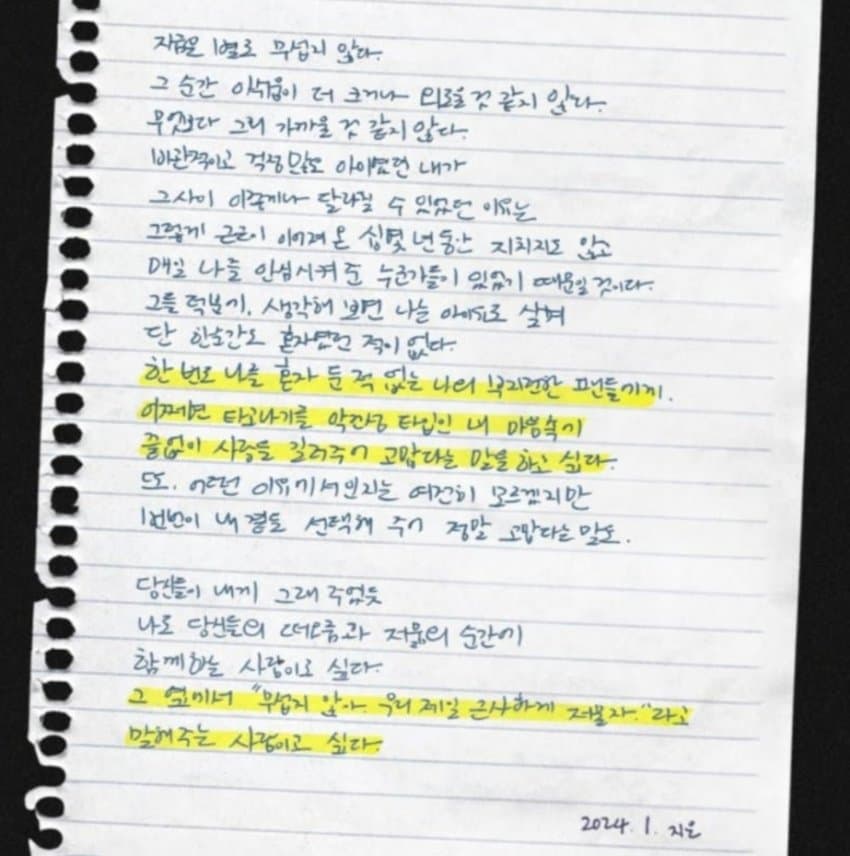 지금은 별로 무섭지 않다.
그 순간 아쉬움이 더 크거나 외로울 것 같지 않다.
무엇보다 그리 가까울 것 같지 않다.
비관적이고 걱정 많던 아이였던 내가
그사이 이렇게나 달라질 수 있었던 이유는
그렇게 근근이 이어져 온 십몇 년 동안 지치지도 않고
매일 나를 안심시켜 준 누군가들이 있었기 때문일 것이다.
그들 덕분에, 생각해 보면 나는 아이유로 살며
단 한순간도 혼자였던 적이 없다.
한 번도 나를 혼자 둔 적 없는 나의 부지런한 팬들에게.
어쩌면 타고나기를 악건성 타입인 내 마음속에
끝없이 사랑을 길러주어 고맙다는 말을 하고 싶다.
또, 어떤 이유에서인지는 여전히 모르겠지만
번번이 내 곁을 선택해 주어 정말 고맙다는 말도.
당신들이 내게 그래 주었듯
나도 당신들의 떠오름과 저묾의 순간에
함께하는 사람이고 싶다.
그 옆에서 "무섭지 않아. 우리 제일 근사하게 저물자."라고
말해주는 사람이고 싶다.
2024. 1. 지은